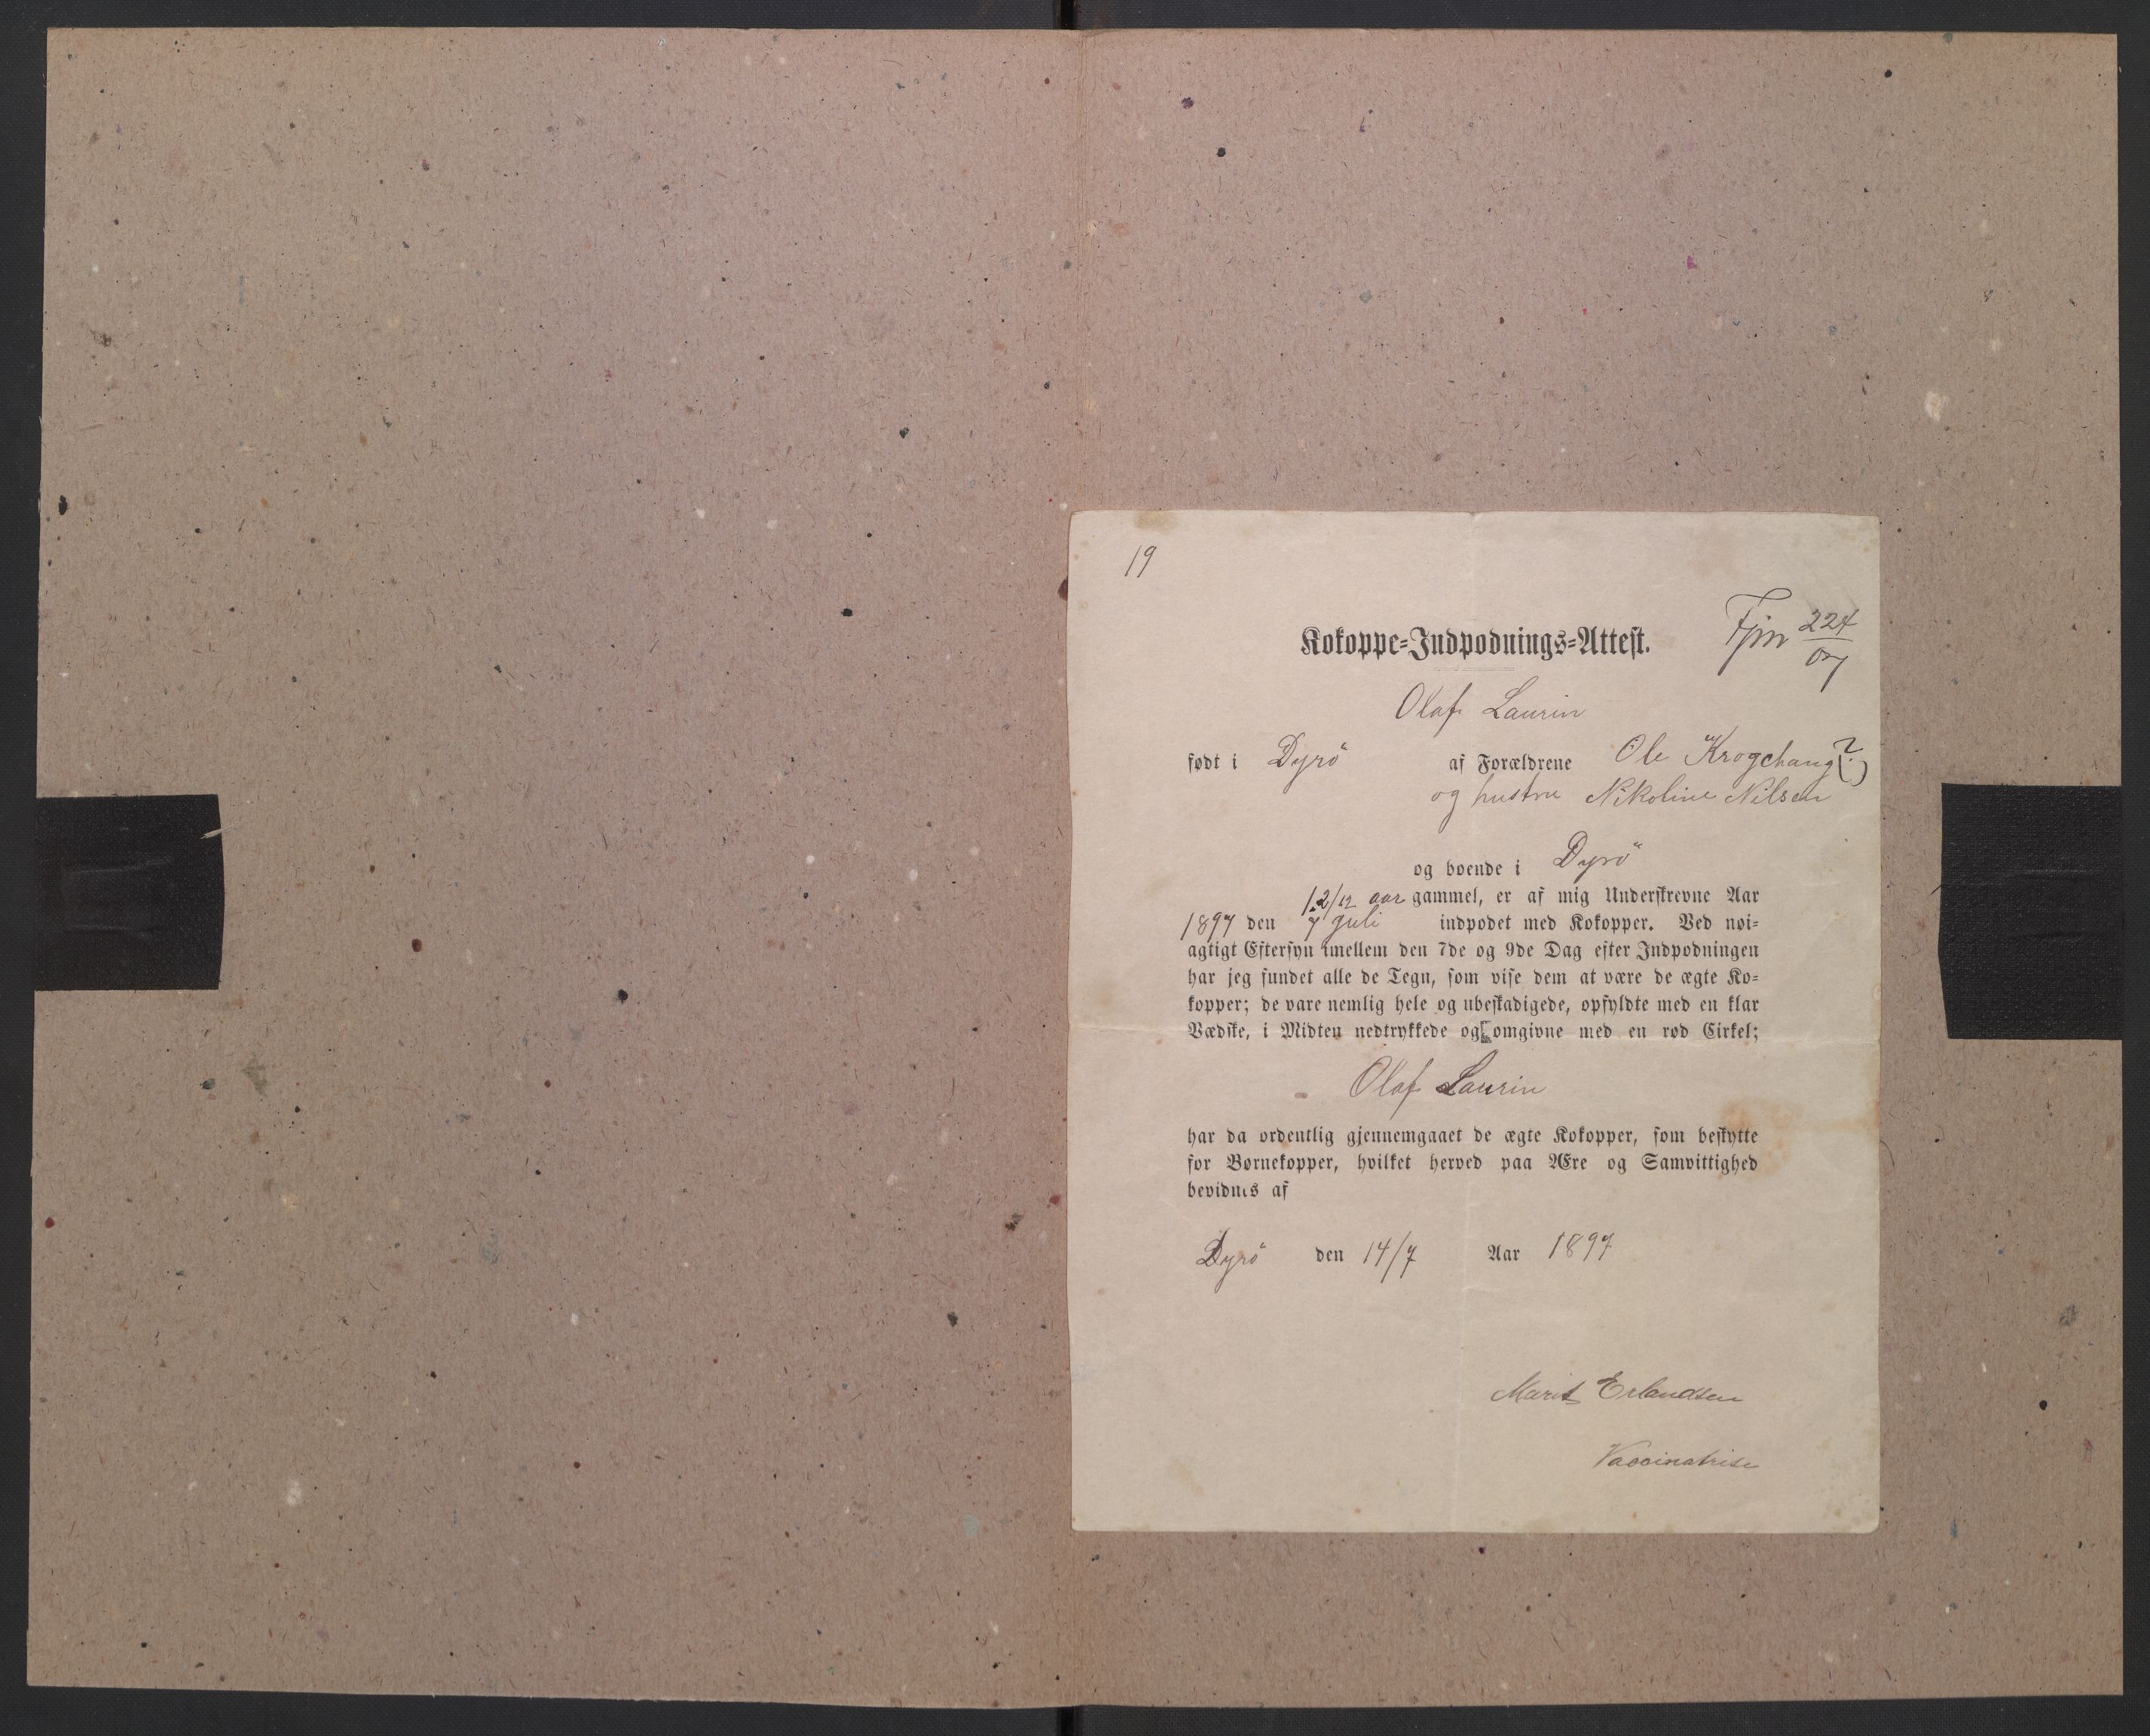 19
Kokoppe-Indpodnings-Attest.
Fjm 224/07
Olaf Laurin
født i Dyrö af Forældrene Ole Krogchaug (?)
og hustru Nikoline Nilsen
og boende i Dyrö
1 2/12 aar gammel, er af mig Underskrevne Aar
1897 den 7 juli indpodet med Kokopper. Ved nøi-
agtigt Eftersyn imellem den 7de og 9de Dag efter Indpodningen
har jeg fundet alle de Tegn, som vise dem at være de ægte Ko-
kopper; de vare nemlig hele og ubeskadigede, opfyldte med en klar
Vædske, i Midten nedtrykkede og omgivne med en rød Cirkel;
Olaf Laurin
har da ordentlig gjennemgaaet de ægte Kokopper, som beskytte
for Børnekopper, hvilket herved paa Ære og Samvittighed
bevidnes af
Dyrö den 14/7 Aar 1897
Marit Erlandsen
Vaccinatrise